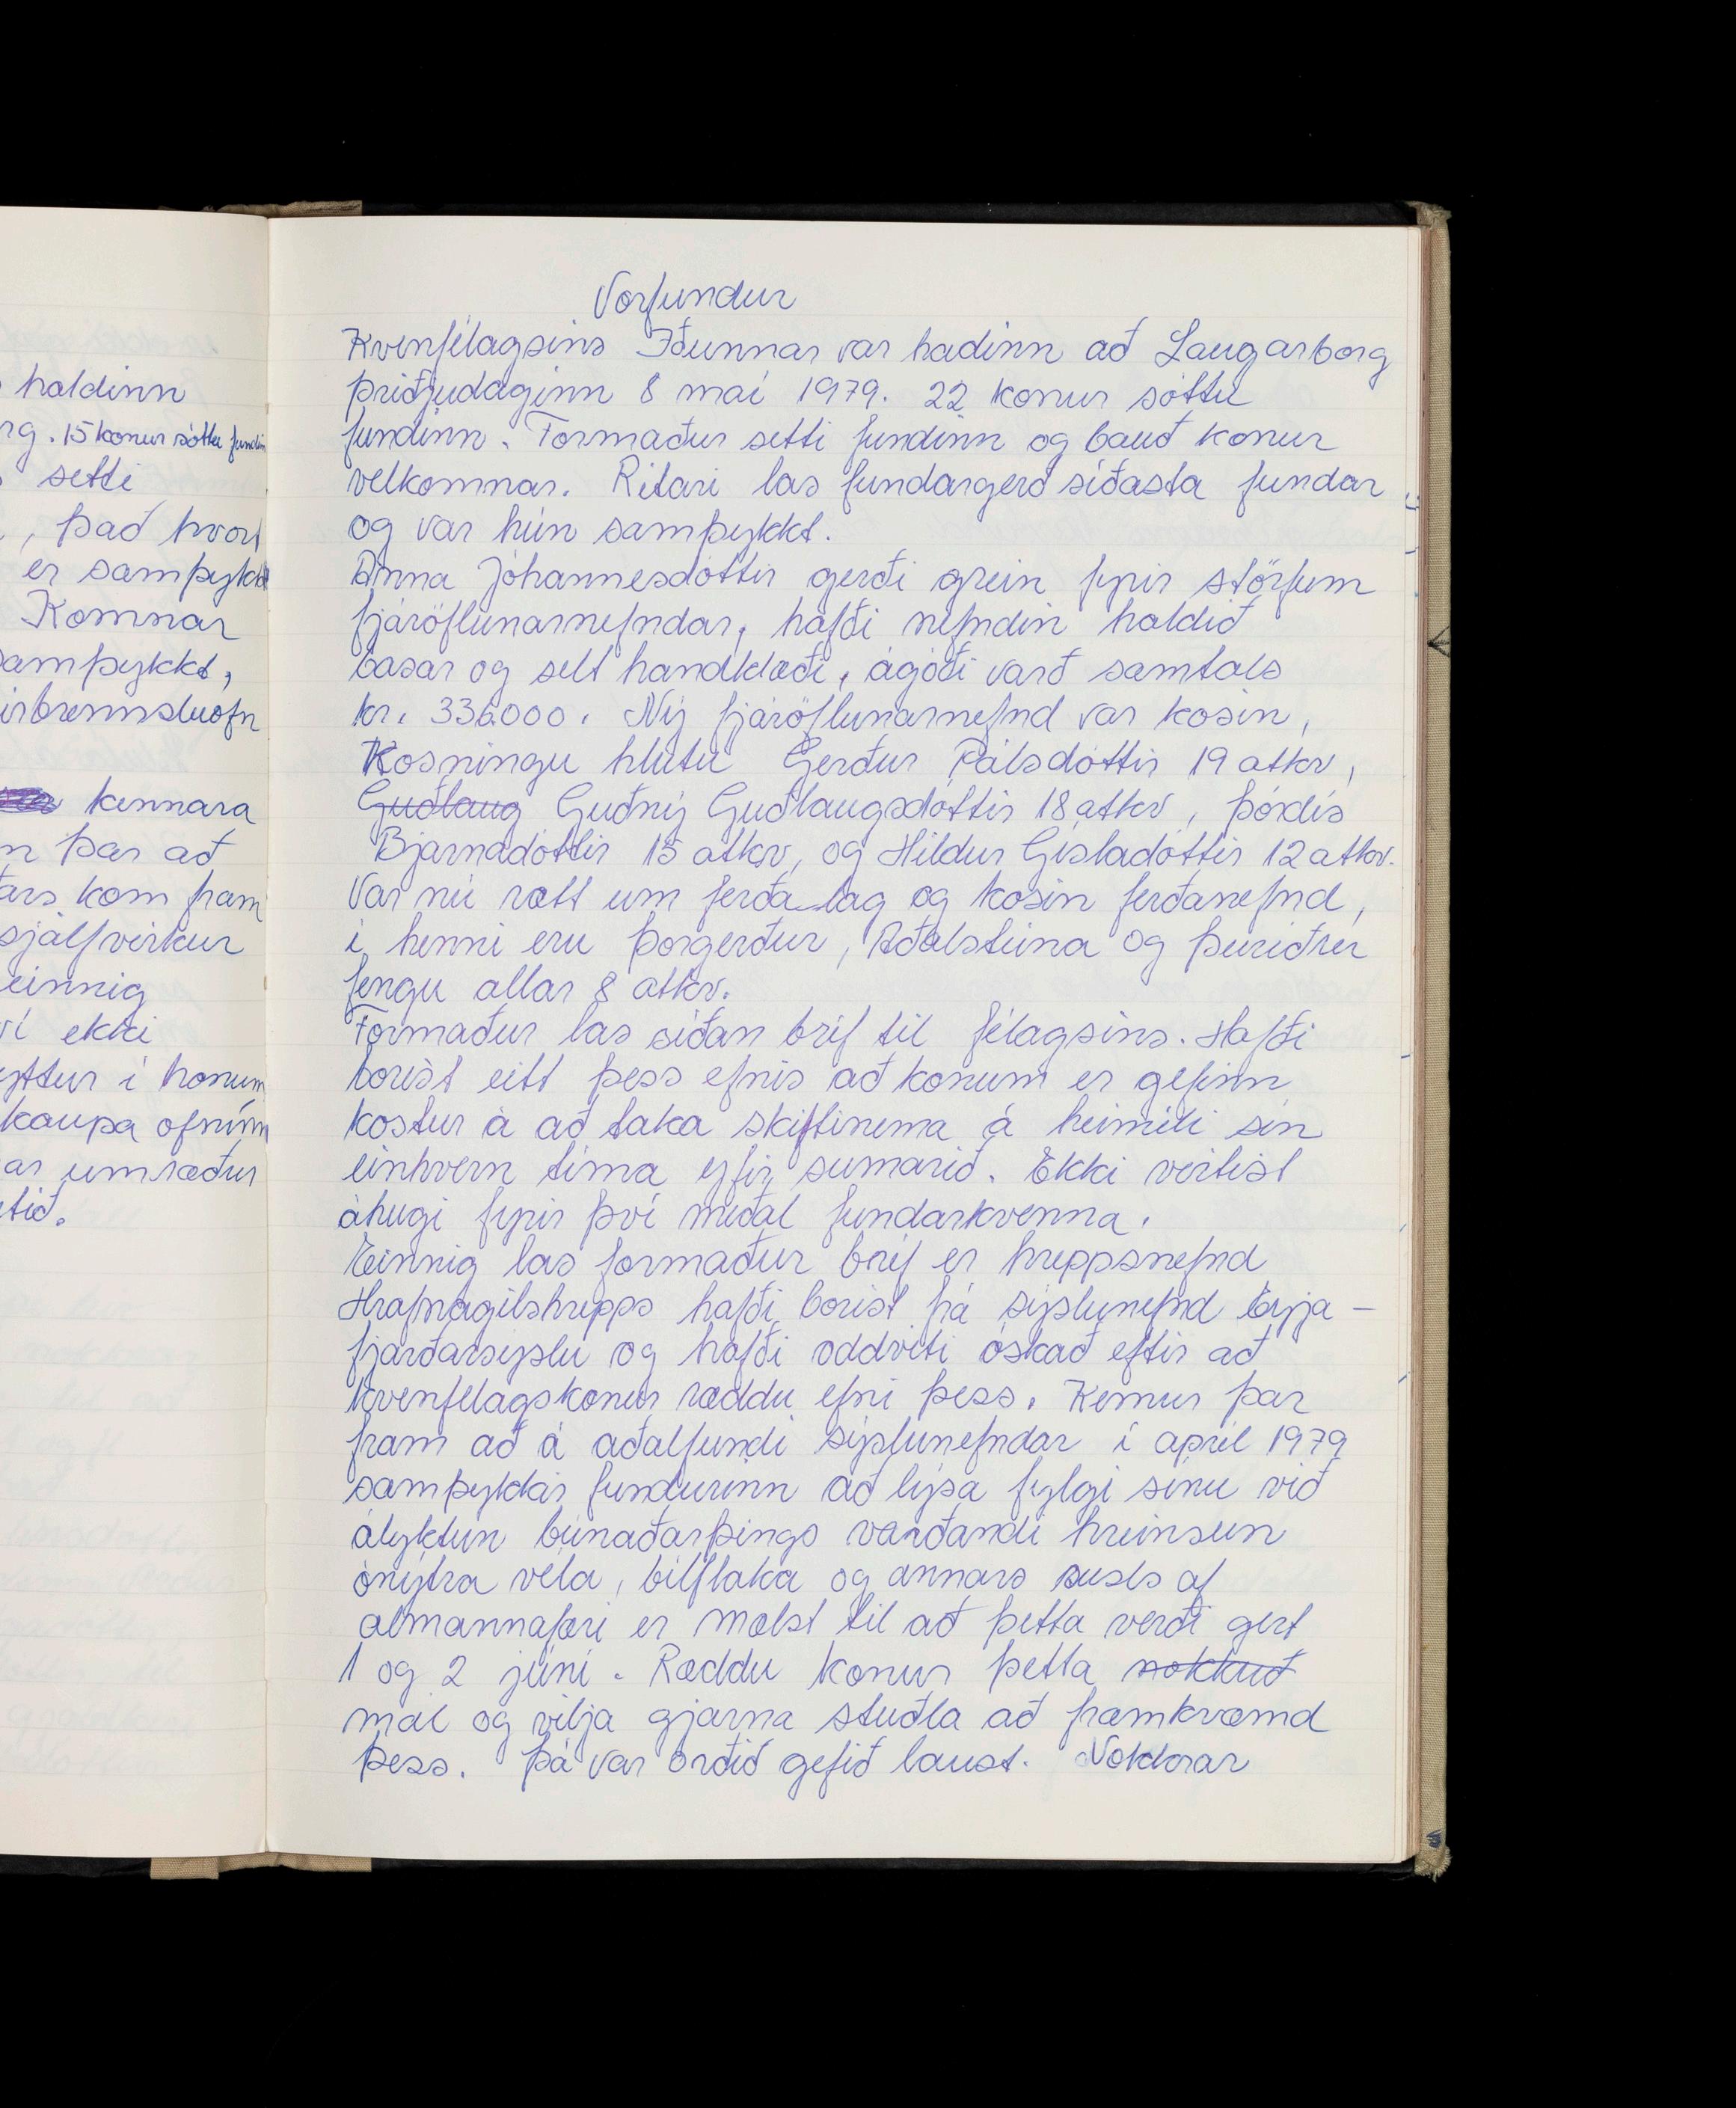 haldinn
rg. 15 konur sóttu fundin
setti
, það hvort
er samþykkt
Komnar
samþykkt,
irbrennsluofn
kennara
n þar að
ars kom fram
sjálfvirkur
einnig
ví ekki
yttur í honum
kaupa ofninn
ar umræður
tið.
Vorfundur
Kvenfélagsins Iðunnar var hadinn að Laugarborg
þriðjudaginn 8 maí 1979. 22 konur sóttu
fundinn. Formaður setti fundinn og bauð konur
velkomnar. Ritari las fundargerð síðasta fundar
og var hún samþykkt.
Anna Jóhannesdóttir gerði grein fyrir störfum
fjáröflunarnefndar, hafði nefndin haldið
basar og selt handklæði, ágóði varð samtals
kr. 336000. Ný fjáröflunarnefnd var kosin,
Kosningu hlutu Gerður Pálsdóttir 19 atkv,
Guðlaug Guðný Guðlaugsdóttir 18 atkv, Þórdís
Bjarnadóttir 15 atkv, og Hildur Gísladóttir 12 atkv.
Var nú rætt um ferðalag og kosin ferðanefnd,
í henni eru Þorgerður, Aðalsteina og Þuríður
fengu allar 8 atkv.
Formaður las síðan bréf til félagsins. Hafði
borist eitt þess efnis að konum er gefinn
kostur á að taka skiftinema á heimili sín
einhvern tíma yfir sumarið. Ekki virtist
áhugi fyrir því meðal fundarkvenna.
Einnig las formaður bréf er hreppsnefnd
Hrafnagilshrepps hafði borist frá sýslunefnd Eyja-
fjarðarsýslu og hafði oddviti óskað eftir að
kvenfélagskonur ræddu efni þess. Kemur þar
fram að á aðalfundi sýslunefndar í apríl 1979
samþykkir fundurinn að lýsa fylgi sínu við
ályktun búnaðarþings varðandi hreinsun
ónýtra véla, bílflaka og annars rusls af
almannafæri er mælst til að þetta verði gert
1 og 2 júní. Ræddu konur þetta nokkuð
mál og vilja gjarna stuðla að framkvæmd
þess. Þá var orðið gefið laust. Nokkrar